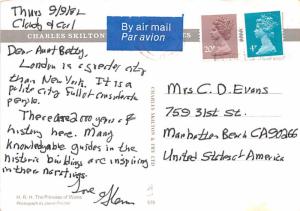 Thurs 9/9/82
Clouds & Cool
Dear Aunt Betty,
London is a greater city
than New York. It is a
polite city full of considerate
people.
There are 2000 years of
history here. Many
knowledgable guides in the
historic buildings are inspiring
in their narratings.
Love Glenn
H. R. H. The Princess of Wales
CHARLES SKILTON
By air mail
Par avion
CHARLES SKILTON & FRY LTD
20p
4p
Mrs C. D. Evans
759 31st St.
Manhattan Beach CA 90266
United States of America